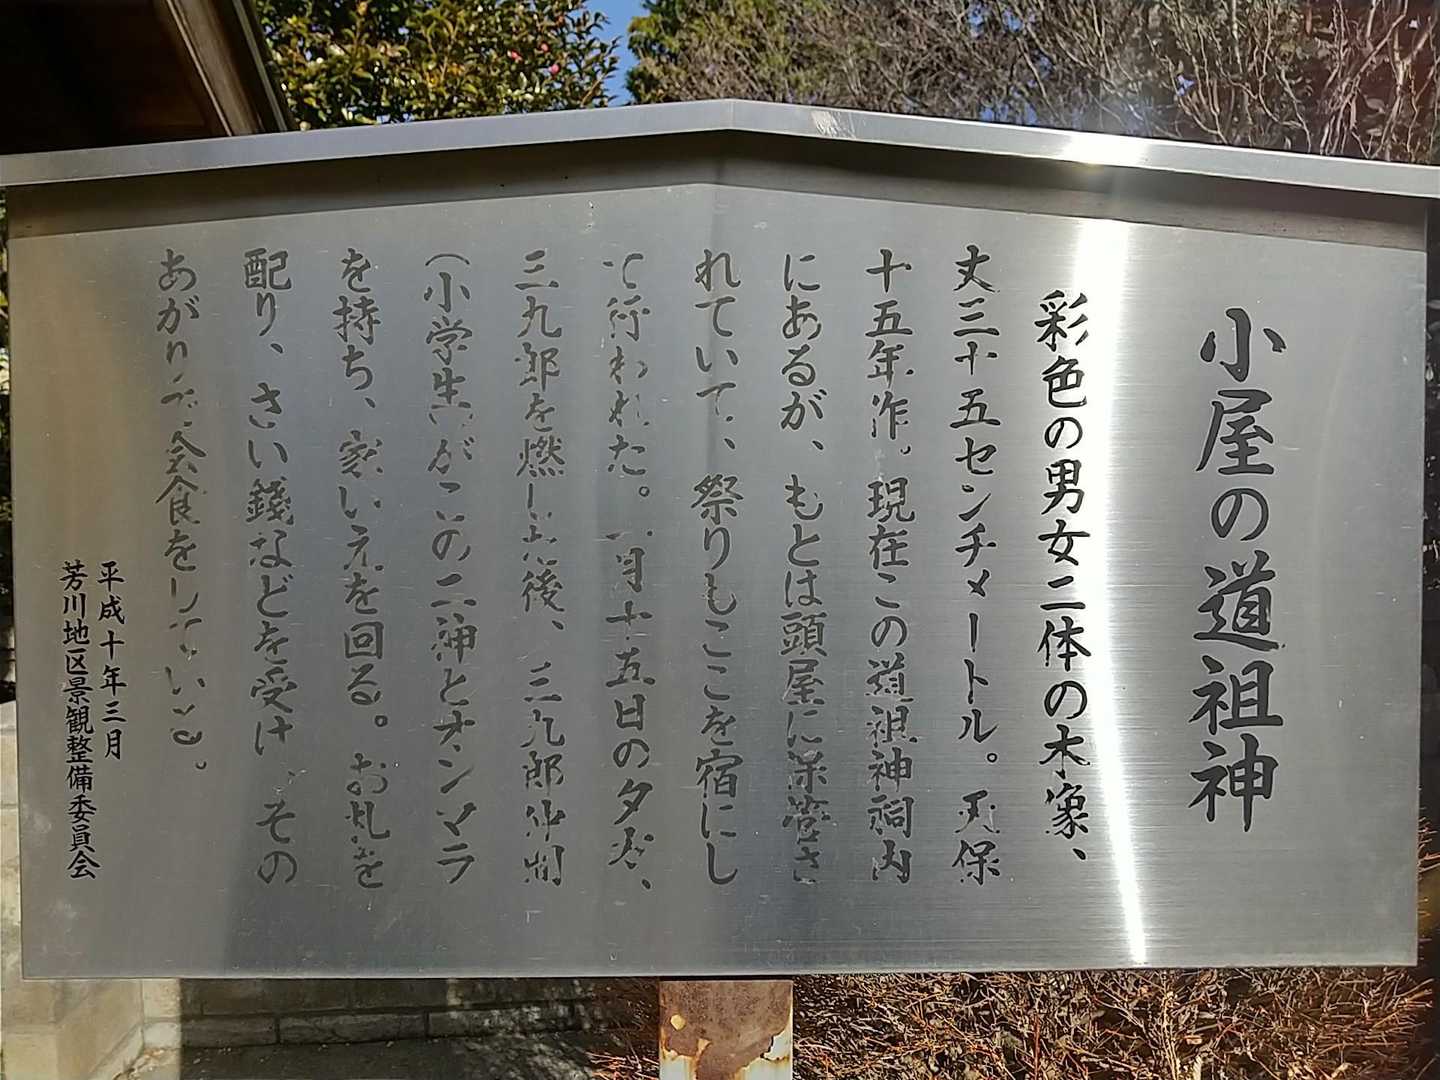 小屋の道祖神
彩色の男女二体の木像、
丈三十五センチメートル。天保
十五年作。現在この道祖神祠内
にあるが、もとは頭屋に保管さ
れていて、祭りもここを宿にし
て行われた。一月十五日の夕方、
三九郎を燃した後、三九郎仲間
(小学生)がこの二神とオンマラ
を持ち、家いえを回る。お札を
配り、さい銭などを受け、その
あがりで会食をしていた。
平成十年三月
芳川地区景観整備委員会